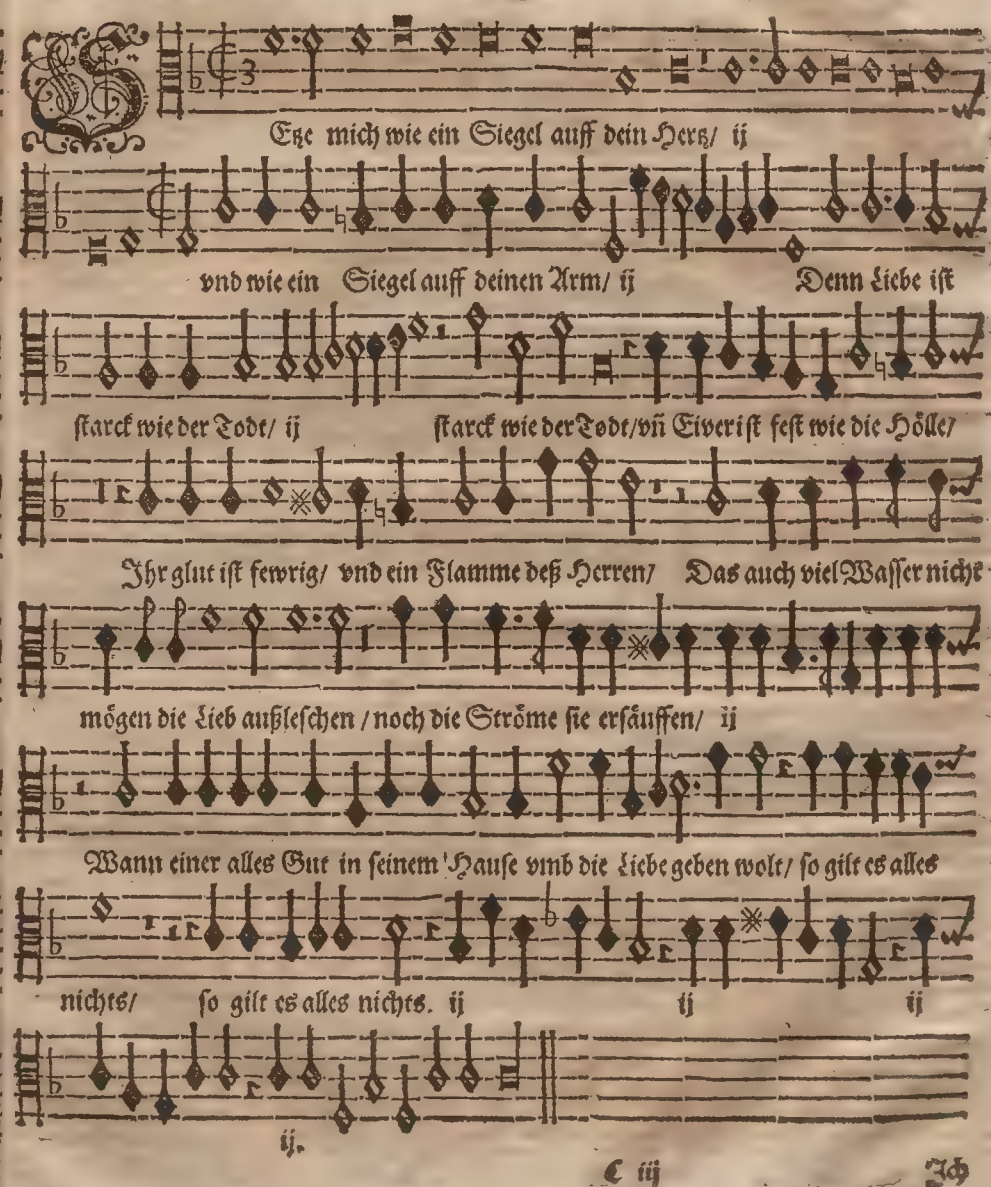 SEtze mich wie ein Siegel auff dein Hertz/ ij
vnd wie ein Siegel auff deinen Arm/ ij Denn Liebe ist
starck wie der Todt/ ij starck wie der Todt/vñ Eiver ist fest wie die Hölle/
Ihr glut ist fewrig/ vnd ein Flamme deß Herren/ Das auch viel Wasser nicht
mögen die Lieb außleschen /noch die Ströme sie ersäuffen/ ij
Wann einer alles Gut in seinem Hause vmb die Liebe geben wolt/ so gilt es alles
nichts/ so gilt es alles nichts. ij ij ij
ij.
C iij Ich